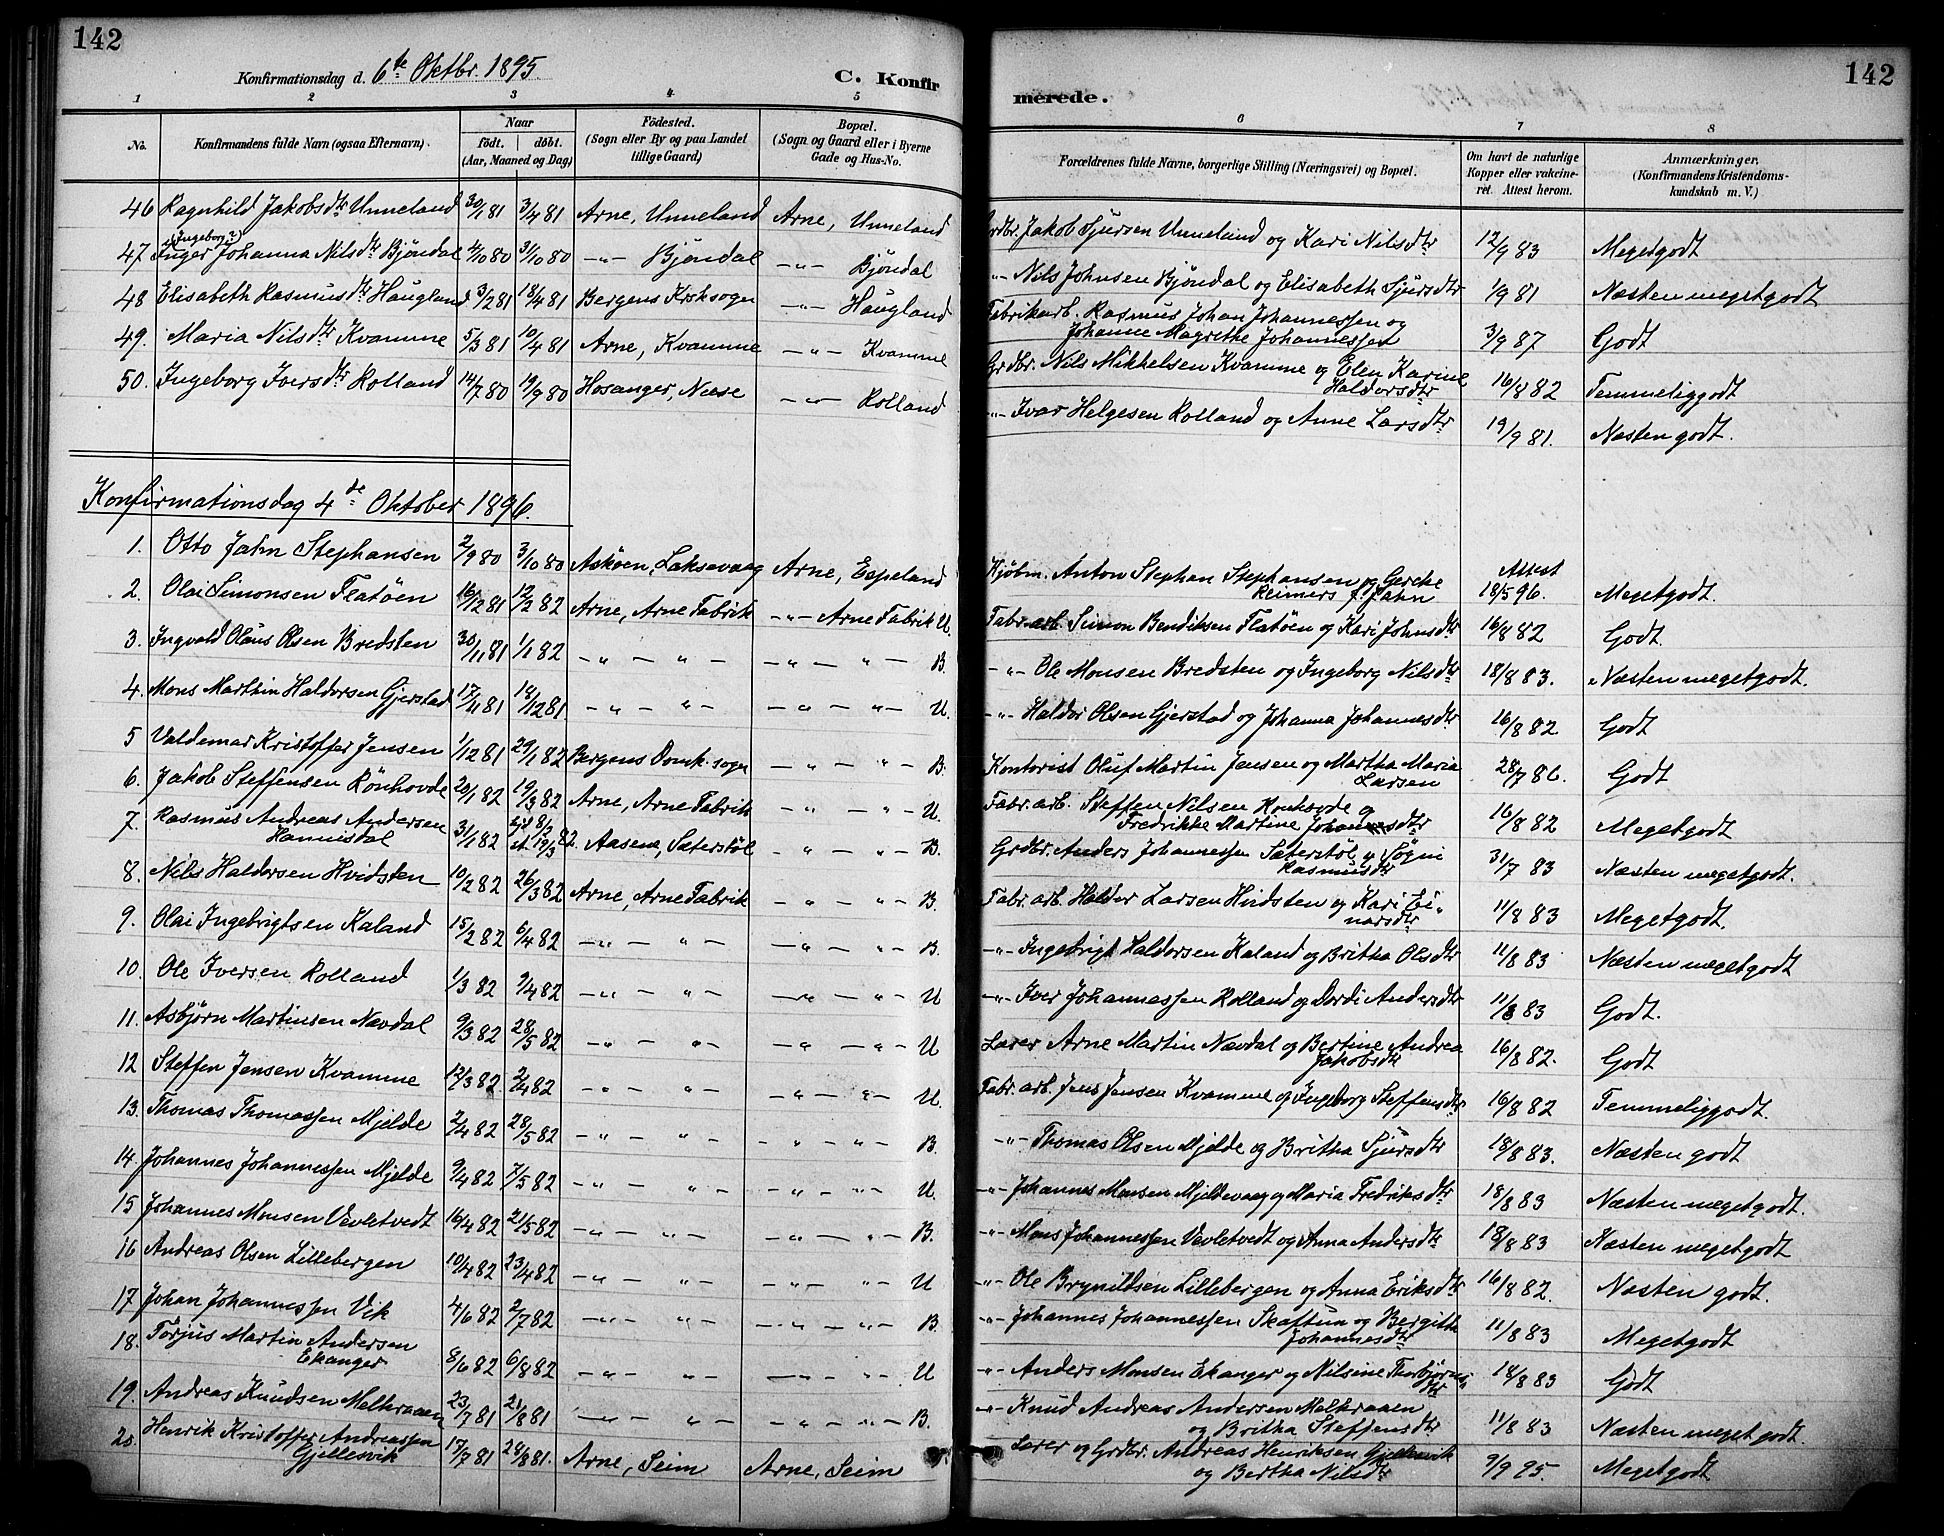 142
Konfirmationsdag d. 6te Oktbr. 1895.
C. Konfirmerede.
142
1 2 3 4 5 6 7 8
No. | Konfirmandens fulde Navn (ogsaa Efternavn). | Naar født. døbt. (Aar, Maaned og Dag) | Fødested. (Sogn eller By og paa Landet tillige Gaard) | Bopæl. (Sogn og Gaard eller i Byerne Gade og Hus-No. | Forældrenes fulde Navne, borgerlige Stilling (Næringsvei) og Bopæl. | Om havt de naturlige Kopper eller vakcineret. Attest herom. | Anmærkninger. (Konfirmandens Kristendomskundskab m. V.)
46 Ragnhild Jakobsdtr Unneland 30/1 81 3/4 81 Arne, Unneland Arne, Unneland Grdbr. Jakob Sjursen Unneland og Kari Nilsdtr 12/9 83 Megetgodt
47 (Ingeborg?) Inger Johanna Nilsdtr Bjøndal 4/10 80 31/10 80 -"- Bjøndal -"- Bjøndal -"- Nils Johnsen Bjøndal og Elisabeth Sjursdtr 1/9 81 Næsten megetgodt
48 Elisabeth Rasmusdtr Haugland 3/2 81 18/4 81 Bergens Krsksogn -"- Haugland Fabrikarb. Rasmus Johan Johannessen og Johanne Magrethe Johannessen 3/9 87 Godt
49. Maria Nilsdtr Kvamme 5/3 81 10/4 81 Arne, Kvamme -"- Kvamme Grdbr. Nils Mikkelsen Kvamme og Elen Karine Haldorsdtr 16/8 82 Temmeliggodt
50. Ingeborg Iversdtr Rolland 14/7 80 19/9 80 Hosanger, Næse -"- Rolland -"- Ivar Helgesen Rolland og Anne Larsdtr 19/9 81. Næsten godt.
Konfirmationsdag 4de Oktober 1896.
1. Otto Jahn Stephansen 2/9 80 3/10 80 Askøen, Laksevaag Arne, Espeland Kjøbm. Anton Stephan Stephansen og Gerche Reimers f. Jahn Attest 18/5 96. Megetgodt.
2. Olai Simonsen Flatøen 16/12 81 12/2 82 Arne, Arne Fabrik -"- Arne Fabrik U. Fabr.arb. Simon Bendiksen Flatøen og Kari Johnsdtr 16/8 82 Godt.
3. Ingvald Olaus Olsen Bredsten 30/11 81 1/1 82 -"- "- -"- "- B. -"- Ole Monsen Bredsten og Ingeborg Nilsdtr 18/8 83. Næsten megetgodt.
4. Mons Martin Haldorsen Gjerstad 17/11 81 18/12 81 -"- "- -"- "- U. -"- Haldor Olsen Gjerstad og Johanna Johannesdtr 16/8 82 Godt
5 Valdemar Kristoffer Jensen 1/12 81 29/1 82 Bergens Domk.sogn -"- "- B. Kontorist Oluf Martin Jensen og Martha Maria Larsen 28/7 86. Godt
6. Jakob Steffensen Rønhovde 20/1 82 19/3 82 Arne, Arne Fabrik -"- "- U. Fabr.arb. Steffen Nilsen Rønhovde og Fredrikke Martine Johannesdtr 16/8 82 Megetgodt
7. Rasmus Andreas Andersen Hannisdal 31/1 82 8/2 st. 19/3 82. Aasene, Sæterstøl -"- "- B. Grdbr. Anders Johannessen Sæterstøl og Søgni Rasmusdtr 31/7 83 Næsten megetgodt.
8. Nils Haldorsen Hvidsten 10/2 82 26/3 82 Arne, Arne Fabrik -"- "- B. Fabr. arb. Haldor Larsen Hvidsten og Kari Einarsdtr 11/8 83 Megetgodt.
9. Olai Ingebrigtsen Kaland 15/2 82 6/4 82 -"- "- -"- "- B. -"- Ingebrigt Haldorsen Kaland og Britha Olsdtr 11/8 83 Næsten megetgodt
10. Ole Iversen Rolland 1/3 82 9/4 82 -"- "- -"- "- U -"- Iver Johannessen Rolland og Dordi Andersdtr 11/8 83 Godt.
11. Asbjørn Martinsen Nævdal 9/3 82 28/5 82 -"- "- -"- "- U Lærer Arne Martin Nævdal og Bertine Andrea Jakobsdtr 16/8 82. Godt
12 Steffen Jensen Kvamme 12/3 82 2/4 82 -"- "- -"- "- U. Fabr. arb. Jens Jensen Kvamme og Ingeborg Steffensdtr 16/8 82 Temmeliggodt.
13. Thomas Thomassen Mjelde 2/4 82 28/5 82 -"- "- -"- "- B -"- Thomas Olsen Mjelde og Britha Sjursdtr 18/8 83. Næsten godt
14. Johannes Johannessen Mjelde 9/4 82 7/5 82 -"- "- -"- "- U. -"- Johannes Monsen Mjeldevaag og Maria Fredriksdtr 18/8 83 Næsten megetgodt.
15 Johannes Monsen Vevletvedt 16/4 82 21/5 82 -"- "- -"- "- B. -"- Mons Johannessen Vevletvedt og Anna Andersdtr 18/8 83 Næsten megetgodt
16 Andreas Olsen Lillebergen 10/4 82 23/4 82 -"- "- -"- "- U -"- Ole Brynildsen Lillebergen og Anna Eriksdtr 16/8 82. Næsten godt.
17 Johan Johannessen Vik 4/6 82 2/7 82 -"- "- -"- "- B. -"- Johannes Johannessen Skaftun og Bergitte Johannesdtr 11/8 83 Megetgodt
18. Torjus Martin Andersen Ekanger 8/6 82 6/8 82 -"- "- -"- "- U -"- Anders Monsen Ekanger og Nilsine Thorbjørnsdtr 18/8 83 Godt
19. Andreas Knudsen Melkraaen 23/7 81 21/8 81 -"- "- -"- "- B. -"- Knud Andreas Andersen Melkraaen og Britha Steffensdtr 11/8 83 Næsten meget godt.
20. Henrik Kristoffer Andreassen Gjellesvik 17/7 81 28/8 81. Arne, Seim Arne, Seim Lærer og Grdbr. Andreas Henriksen Gjellesvik og Bertha Nilsdtr 9/9 95. Megetgodt